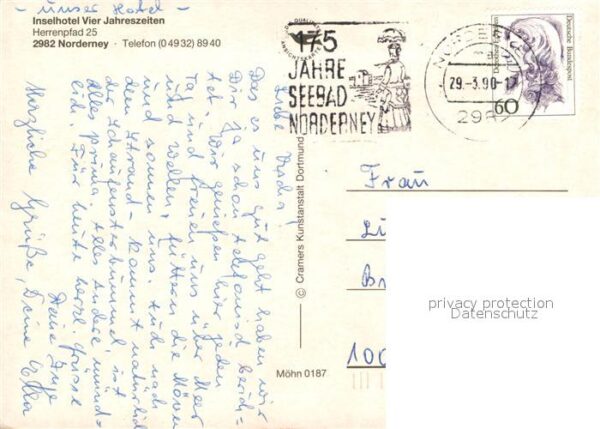 - unser Hotel -
Inselhotel Vier Jahreszeiten
Herrenpfad 25
2982 Norderney · Telefon (0 49 32) 89 40
Liebe
Das es uns gut geht haben wir
Dir ja schon telefonisch berich-
tet. Wir genießen hier jeden
Tag und freuen uns über Meer
und Wellen, füttern die Möven
und sonnen uns. Auch nach
dem Strand- kommt natürlich
der Schaufensterbummel, ist
alles prima. Alles andere münd-
lich. Für heute herzl. Grüsse
Deine
Herzliche Grüße, Deine
Möhn 0187
© Cramers Kunstanstalt Dortmund
175
JAHRE
SEEBAD
NORDERNEY
29.-3.90-17
298
Deutsche Bundespost
60
Frau
100
privacy protection
Datenschutz